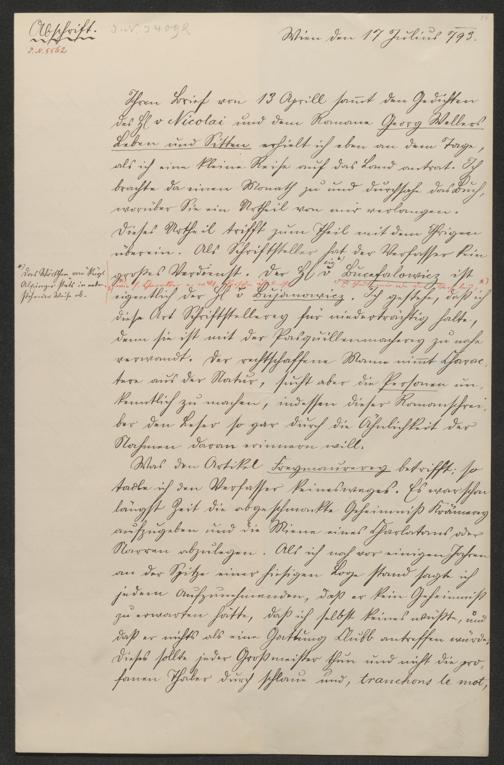 Abschrift.
I.N. 5462
Wien den 17 Julius 793.
Ihren Brief vom 13 Aprill sammt den Gedichten
des H v Nicolai und dem Romane Georg Wellers
Leben und Sitten erhielt ich eben an dem Tage,
als ich eine kleine Reise auf das Land antrat. Ich
brachte da einen Monath zu und durchsahe das Buch,
worüber Sie ein Urtheil von mir verlangen.
Dieses Urtheil trifft zum Theil mit dem Ihrigen
überein. Als Schriftsteller hat der Verfasser kein
großes Verdienst. Der H v Bucefalowicz ist
eigentlich der H v Bujanowicz. Ich gestehe, daß ich
diese Art Schriftstellerey für niederträchtig halte,
denn sie ist mit der Pasquillenmacherey zu nahe
verwandt. Der rechtschaffene Mann nimmt Charac-
tere aus der Natur, sucht aber die Personen un-
kenntlich zu machen, indessen dieser Romanschrei-
ber den Leser so gar durch die Ähnlichkeit der
Nahmen daran erinnern will.
Was den Artikel Freymaurerey betrifft: so
tadle ich den Verfasser keinesweges. Es war schon
längst Zeit die abgeschmackte Geheimniß Krämerey
aufzugeben und die Miene eines Charlatans oder
Narren abzulegen. Als ich noch vor einigen Jahren
an der Spitze einer hiesigen Loge stand sagte ich
jedem Aufzunehmenden, daß er kein Geheimniß
zu erwarten hätte, daß ich selbst keines wüßte, und
daß er nichts als eine Gattung Clubb antreffen würde.
Dieses sollte jeder Großmeister thun und nicht die pro-
fanen Thaler durch schlaue und, tranchons le mot,